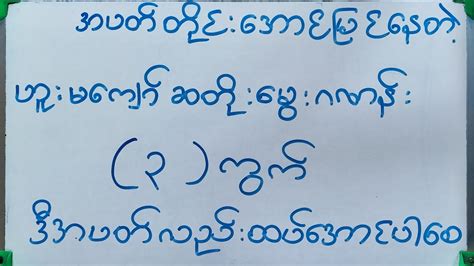 အပတ်တိုင်းအောင်မြင်နေတဲ့
ဟူးမကျော်ဆတိုးမွေးဂဏန်း
(၃)ကွက်
ဒီအပတ်လည်းထပ်အောင်ပါစေ